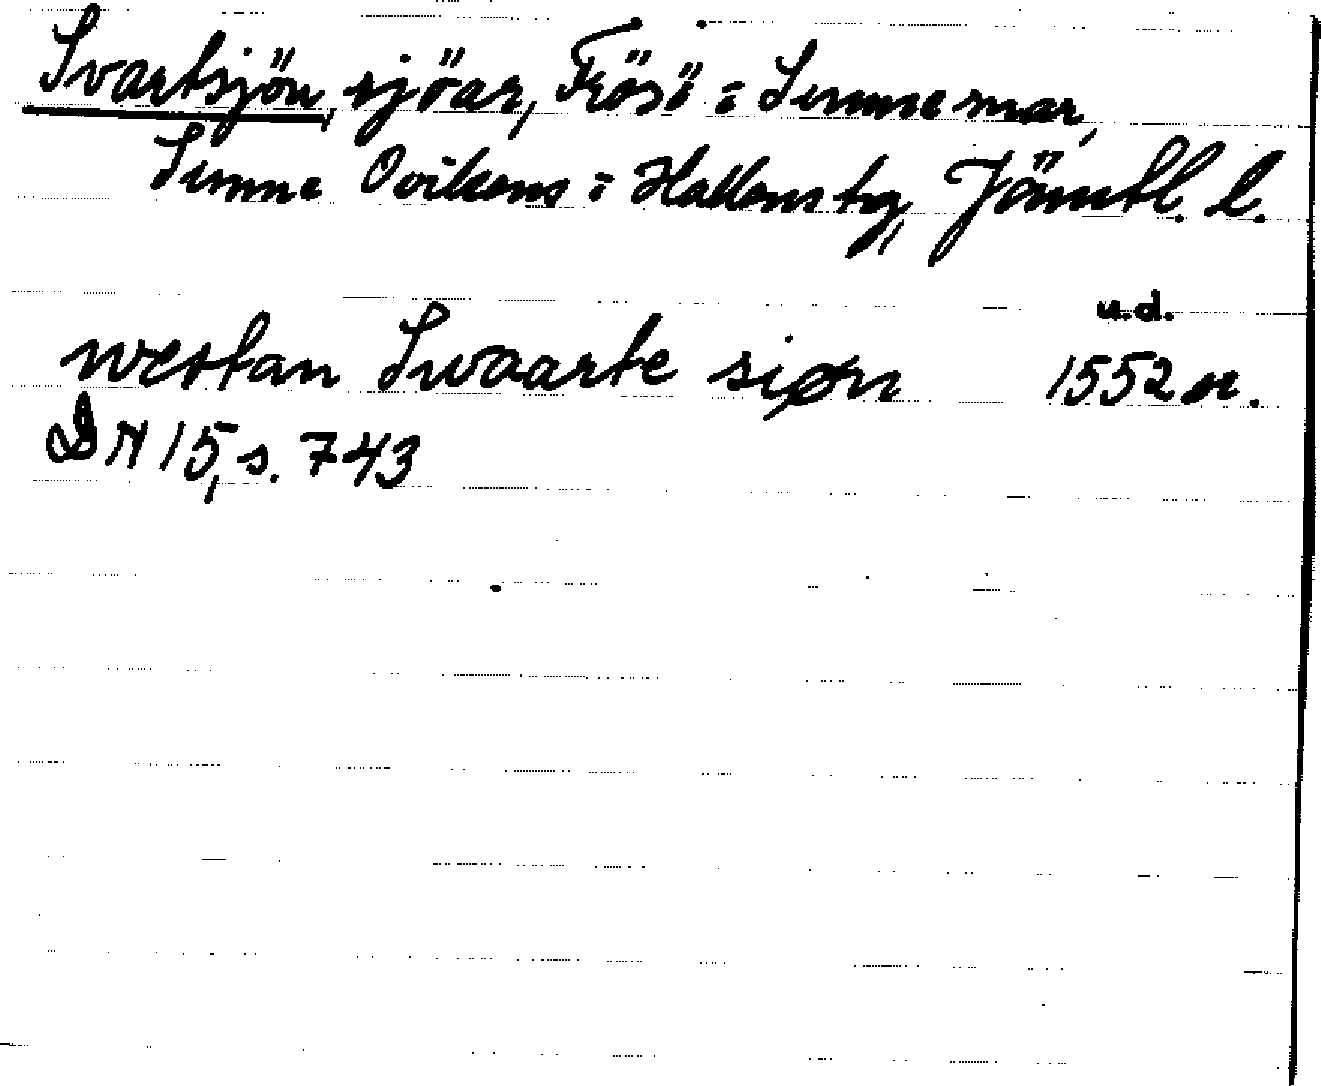 Svartsjön, sjöar, Frösö = Sunne mar,
Sunne Ovikens = Hallens tg, Jämtl. l.
u.d.
westan Swaarte siøn 1552 or.
DN 15, s. 743